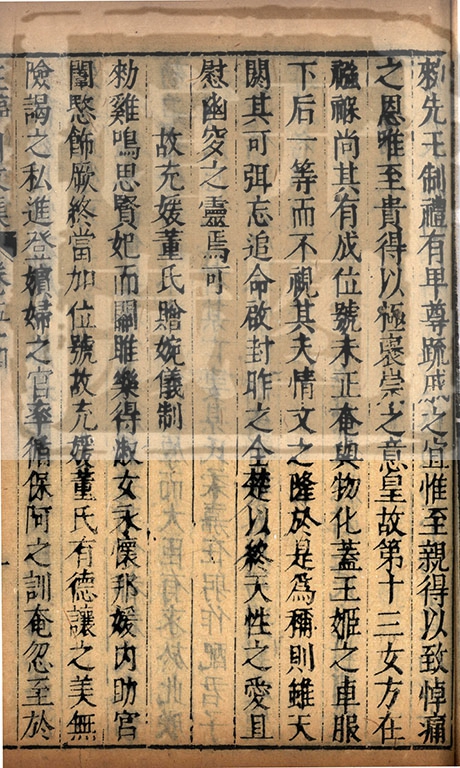 勑先王制禮有卑尊䟽戚之宜惟至親得以致悼痛
之恩唯至貴得以極褒崇之意皇故第十三女方在
襁褓尚其有成位號未正奄與物化蓋王姬之車服
下后一等而不視其夫情文之隆於是爲稱則雖天
閼其可弭忘追命啟封昨之全楚以終天性之愛且
慰幽穸之靈焉可
故充媛董氏贈婉儀制
勑雞鳴思賢妃而關雎樂得淑女永懷邦媛内助宮
闈愍飾厥終當加位號故充媛董氏有德讓之美無
險謁之私進登嬪婦之官率循保阿之訓奄忽至於